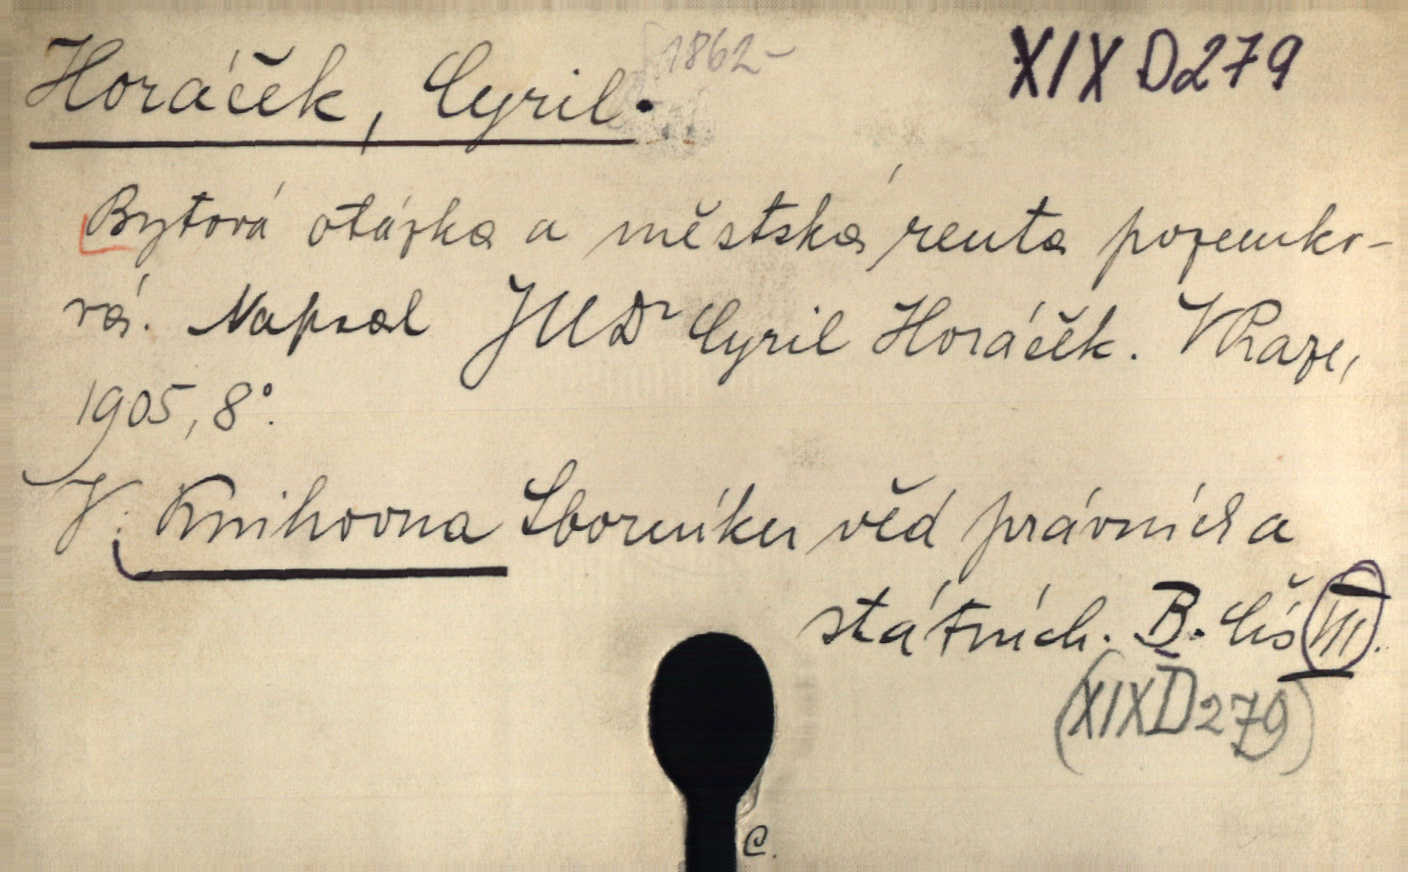 Horáček, Cyril. 1862- XIX D 279
Bytová otázka a městská renta pozemko-
vá. Napsal JUDr Cyril Horáček. V Praze,
1905, 8°.
V: Knihovna Sborníku věd právních a
státních. B. Čís III.
(XIX D 279)
C.